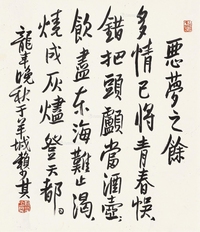 惡夢之餘
多情已將青春悞
錯把頭顱當酒壺
飲盡東海難止渴
燒成灰燼登天都
龍年晚秋于羊城賴少其